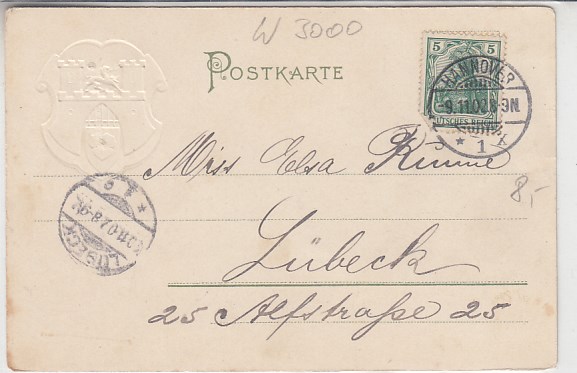 W 3000
POSTKARTE
5 5
DEUTSCHES REICH
HANNOVER
9.11.02.8-9N
* 1 k
Miss Elsa Kinne
8,-
LÜBECK
Lübeck
25 Alfstraße 25